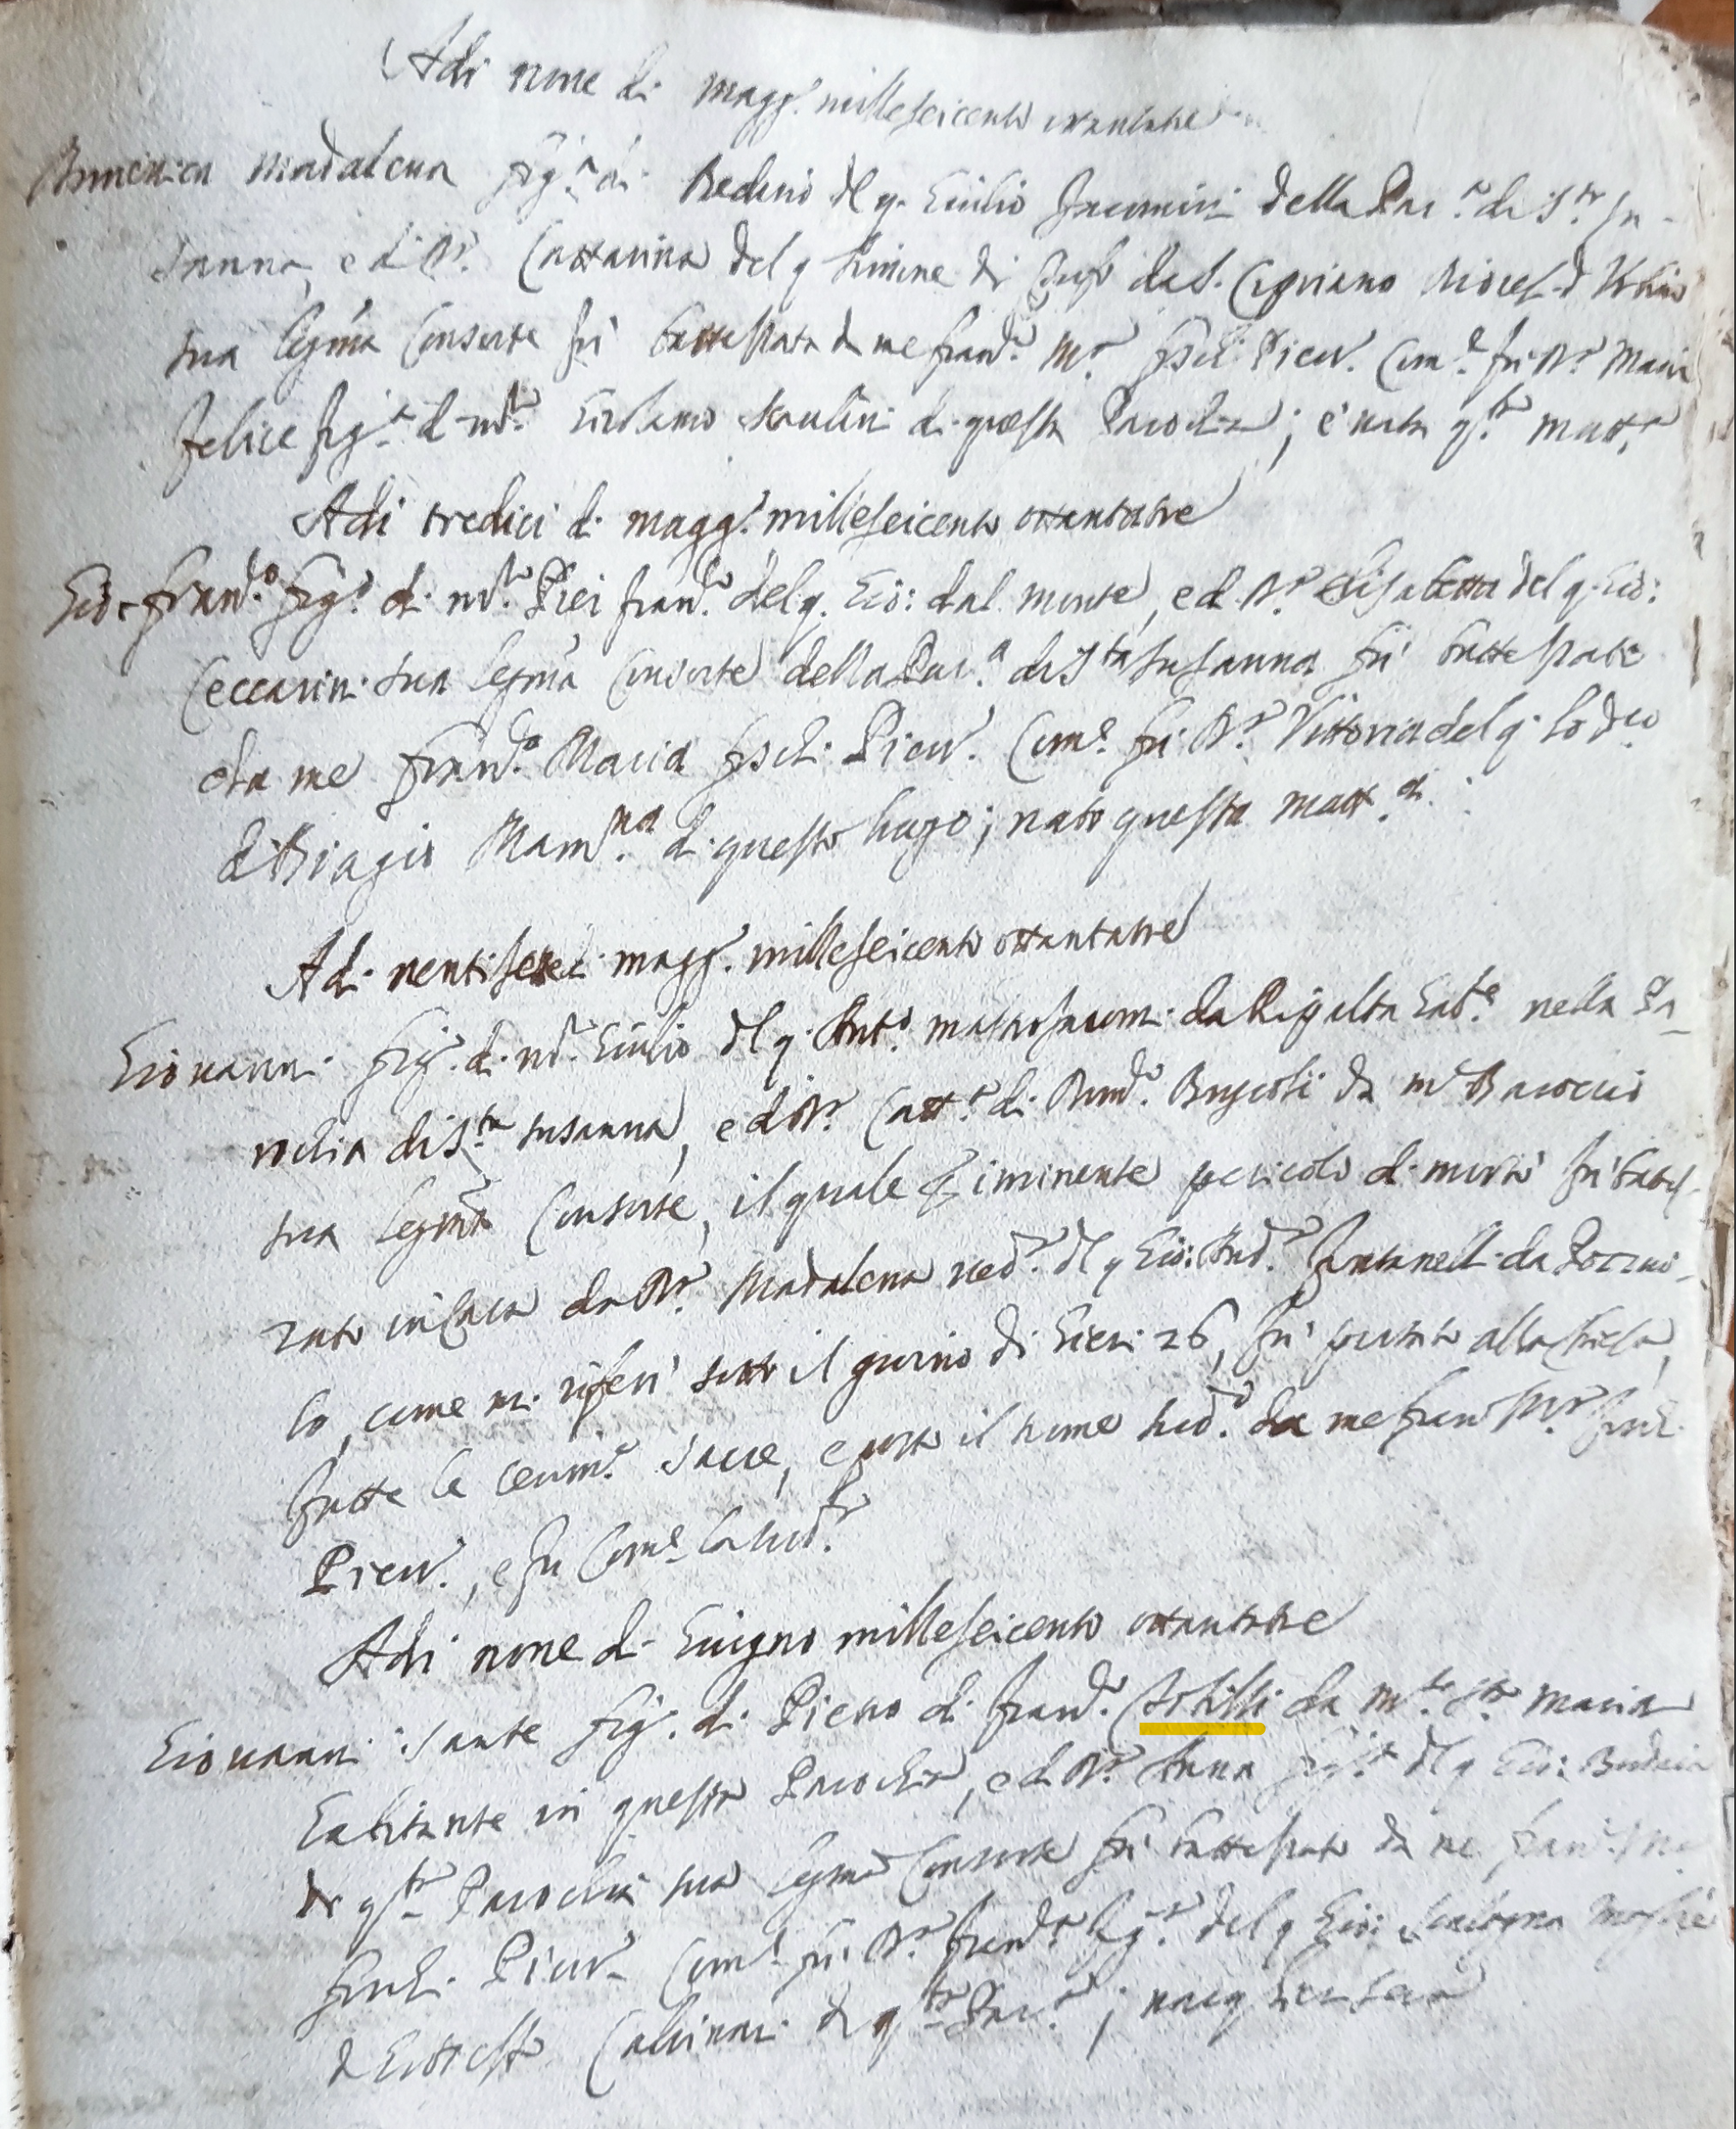 Adi nove di magg.º milleseicento ottantatre
Domenica Madalena fig.ª di del q. Giulio della Par.ª di S.ta Su-
sanna, e di D.ª Cattarina del q. Simone di da S. Cipriano Dioces. d'Urbino
sua legma Consorte fù battezzata da me Fran.º M.ª Piev. Com.e fù D.ª Maria
Felice fig.ª di m.º Girolamo di questa Parochia; è nata q.ta matt.ª
Adi tredici di magg.º milleseicento ottantatre
Gio: Fran.º fig.º di m.º Pier Fran.º del q. Gio: dal monte, e di D.ª Elisabetta del q. Gio:
Ceccarini sua legma Consorte della Par.ª di S.ta Susanna fù battezzato
da me Fran.º Maria Piev. Com.e fù D.ª Vittoria del q. Lod.co
di Biagio Mam.na di questo luogo; nato questa matt.a
Adi ventisette di magg.º milleseicento ottantatre
Giovanni fig.º di m.º Giulio del q. Ant.º da Ripalta hab.e nella Pa-
rochia di S.ta Susanna, e di D.ª Catt.ª di Dom.º Bruscoli da m.e Baroccio
sua legma Consorte, il quale per iminente pericolo di morte fù battez-
zato in Casa da D.ª Madalena ved.ª del q. Gio: And.ª Fontanelli da
lo, come mi riferi sotto il giorno di hieri 26, fù portato alla Chiesa,
fatte le cerim.e sacre, e posto il nome sud.º da me Fran.º M.ª
Piev., e fu Com.e la sud.ta
Adi nove di Giugno milleseicento ottantatre
Giovanni Sante fig.º di Piero di Fran.º da m.te S.ta Maria
habitante in questa Parochia, e di D.ª Anna fig.ª del q. Gio:
di q.ta Parochia sua legma Consorte fù battezzato da me Fran.º M.ª
Piev. Com.e fù D.ª Fran.ca fig.ª del q. Gio: Moglie
di di q.ta Par.ª; nacq. hier sera